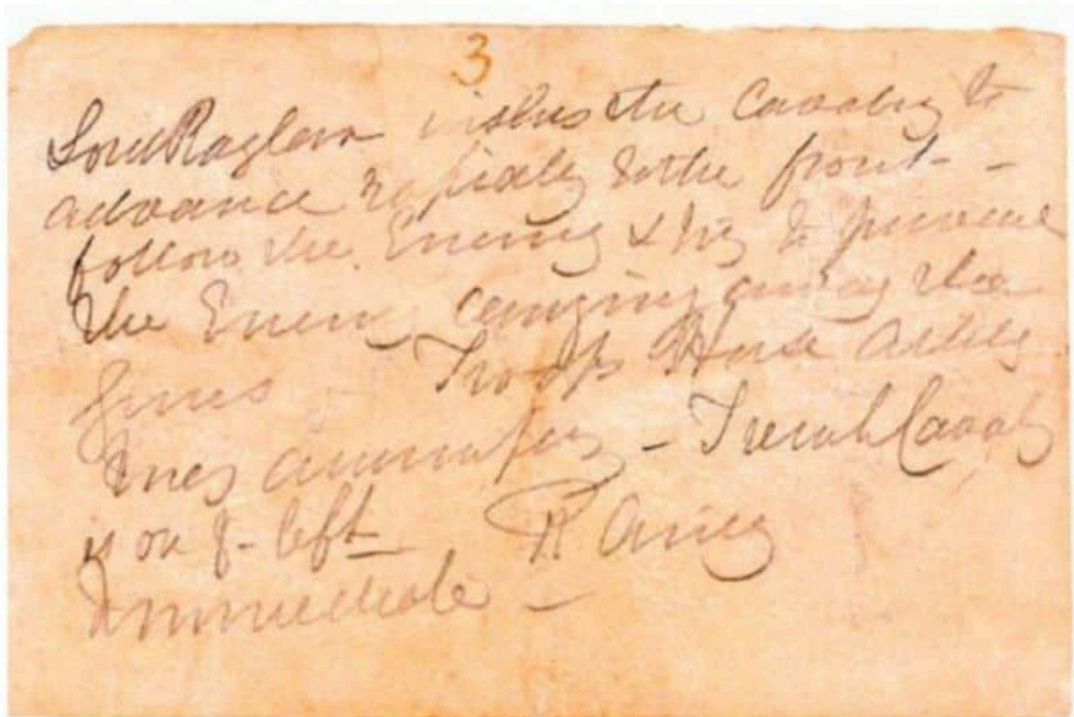 3
Lord Raglan wishes the Cavalry to
advance rapidly to the front -
follow the Enemy & try to prevent
the Enemy carrying away the
guns - Troop Horse Artily
may accompany - French Cavaly
is on yr left R Airey
Immediate -